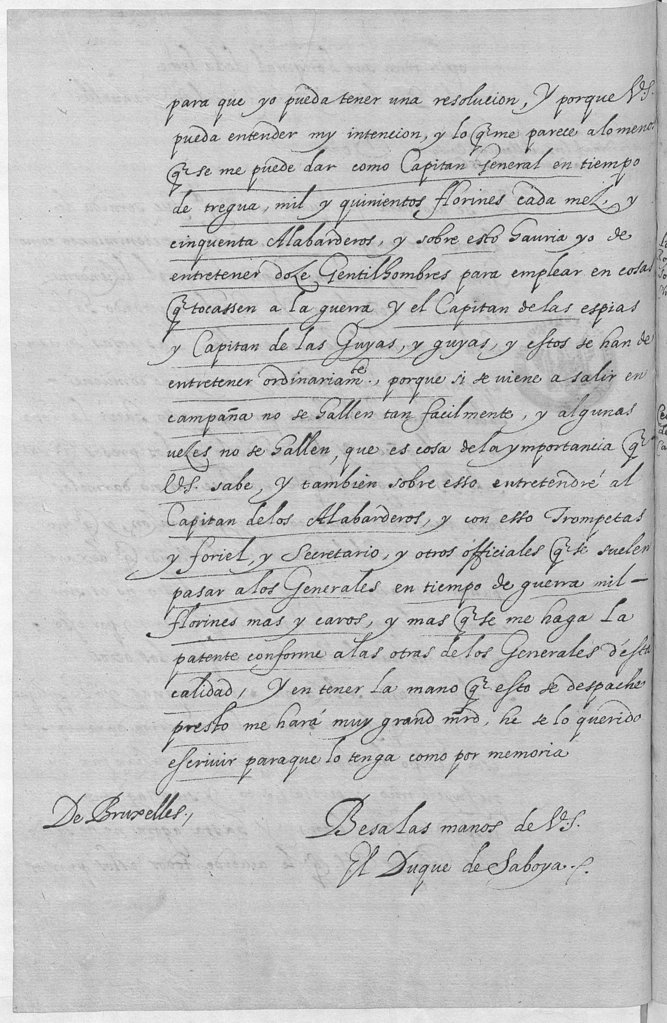 para que yo pueda tener una resolucion, y porque V.S.
pueda entender my intencion, y lo q̃ me parece a lo menos
q̃ se me puede dar como Capitan General en tiempo
de tregua, mil y quinientos florines cada mez, y
cinquenta Alabarderos, y sobre esto hauria yo de
entretener doze Gentilhombres para emplear en cosas
q̃ tocassen a la guerra y el Capitan de las espias
y Capitan de las Guyas, y guyas, y estos se han de
entretener ordinariamte., porque si se viene a salir en
campaña no se hallen tan facilmente, y algunas
vezes no se hallen, que es cosa de la ymportancia q̃
V.S. sabe, y tambien sobre esso entretendré al
Capitan de los Alabarderos, y con esso Trompetas
y foriel, y Secretario, y otros officiales q̃ se suelen
pasar a los Generales en tiempo de guerra mil
florines mas y caros, y mas q̃ se me haga la
patente conforme a las otras de los Generales d'esta
calidad, y en tener la mano q̃ esto se despache
presto me hará muy grand mrd, he se lo querido
escriuir paraque lo tenga como por memoria
De Bruxelles,
Besa las manos de V.S.
El Duque de Saboya.